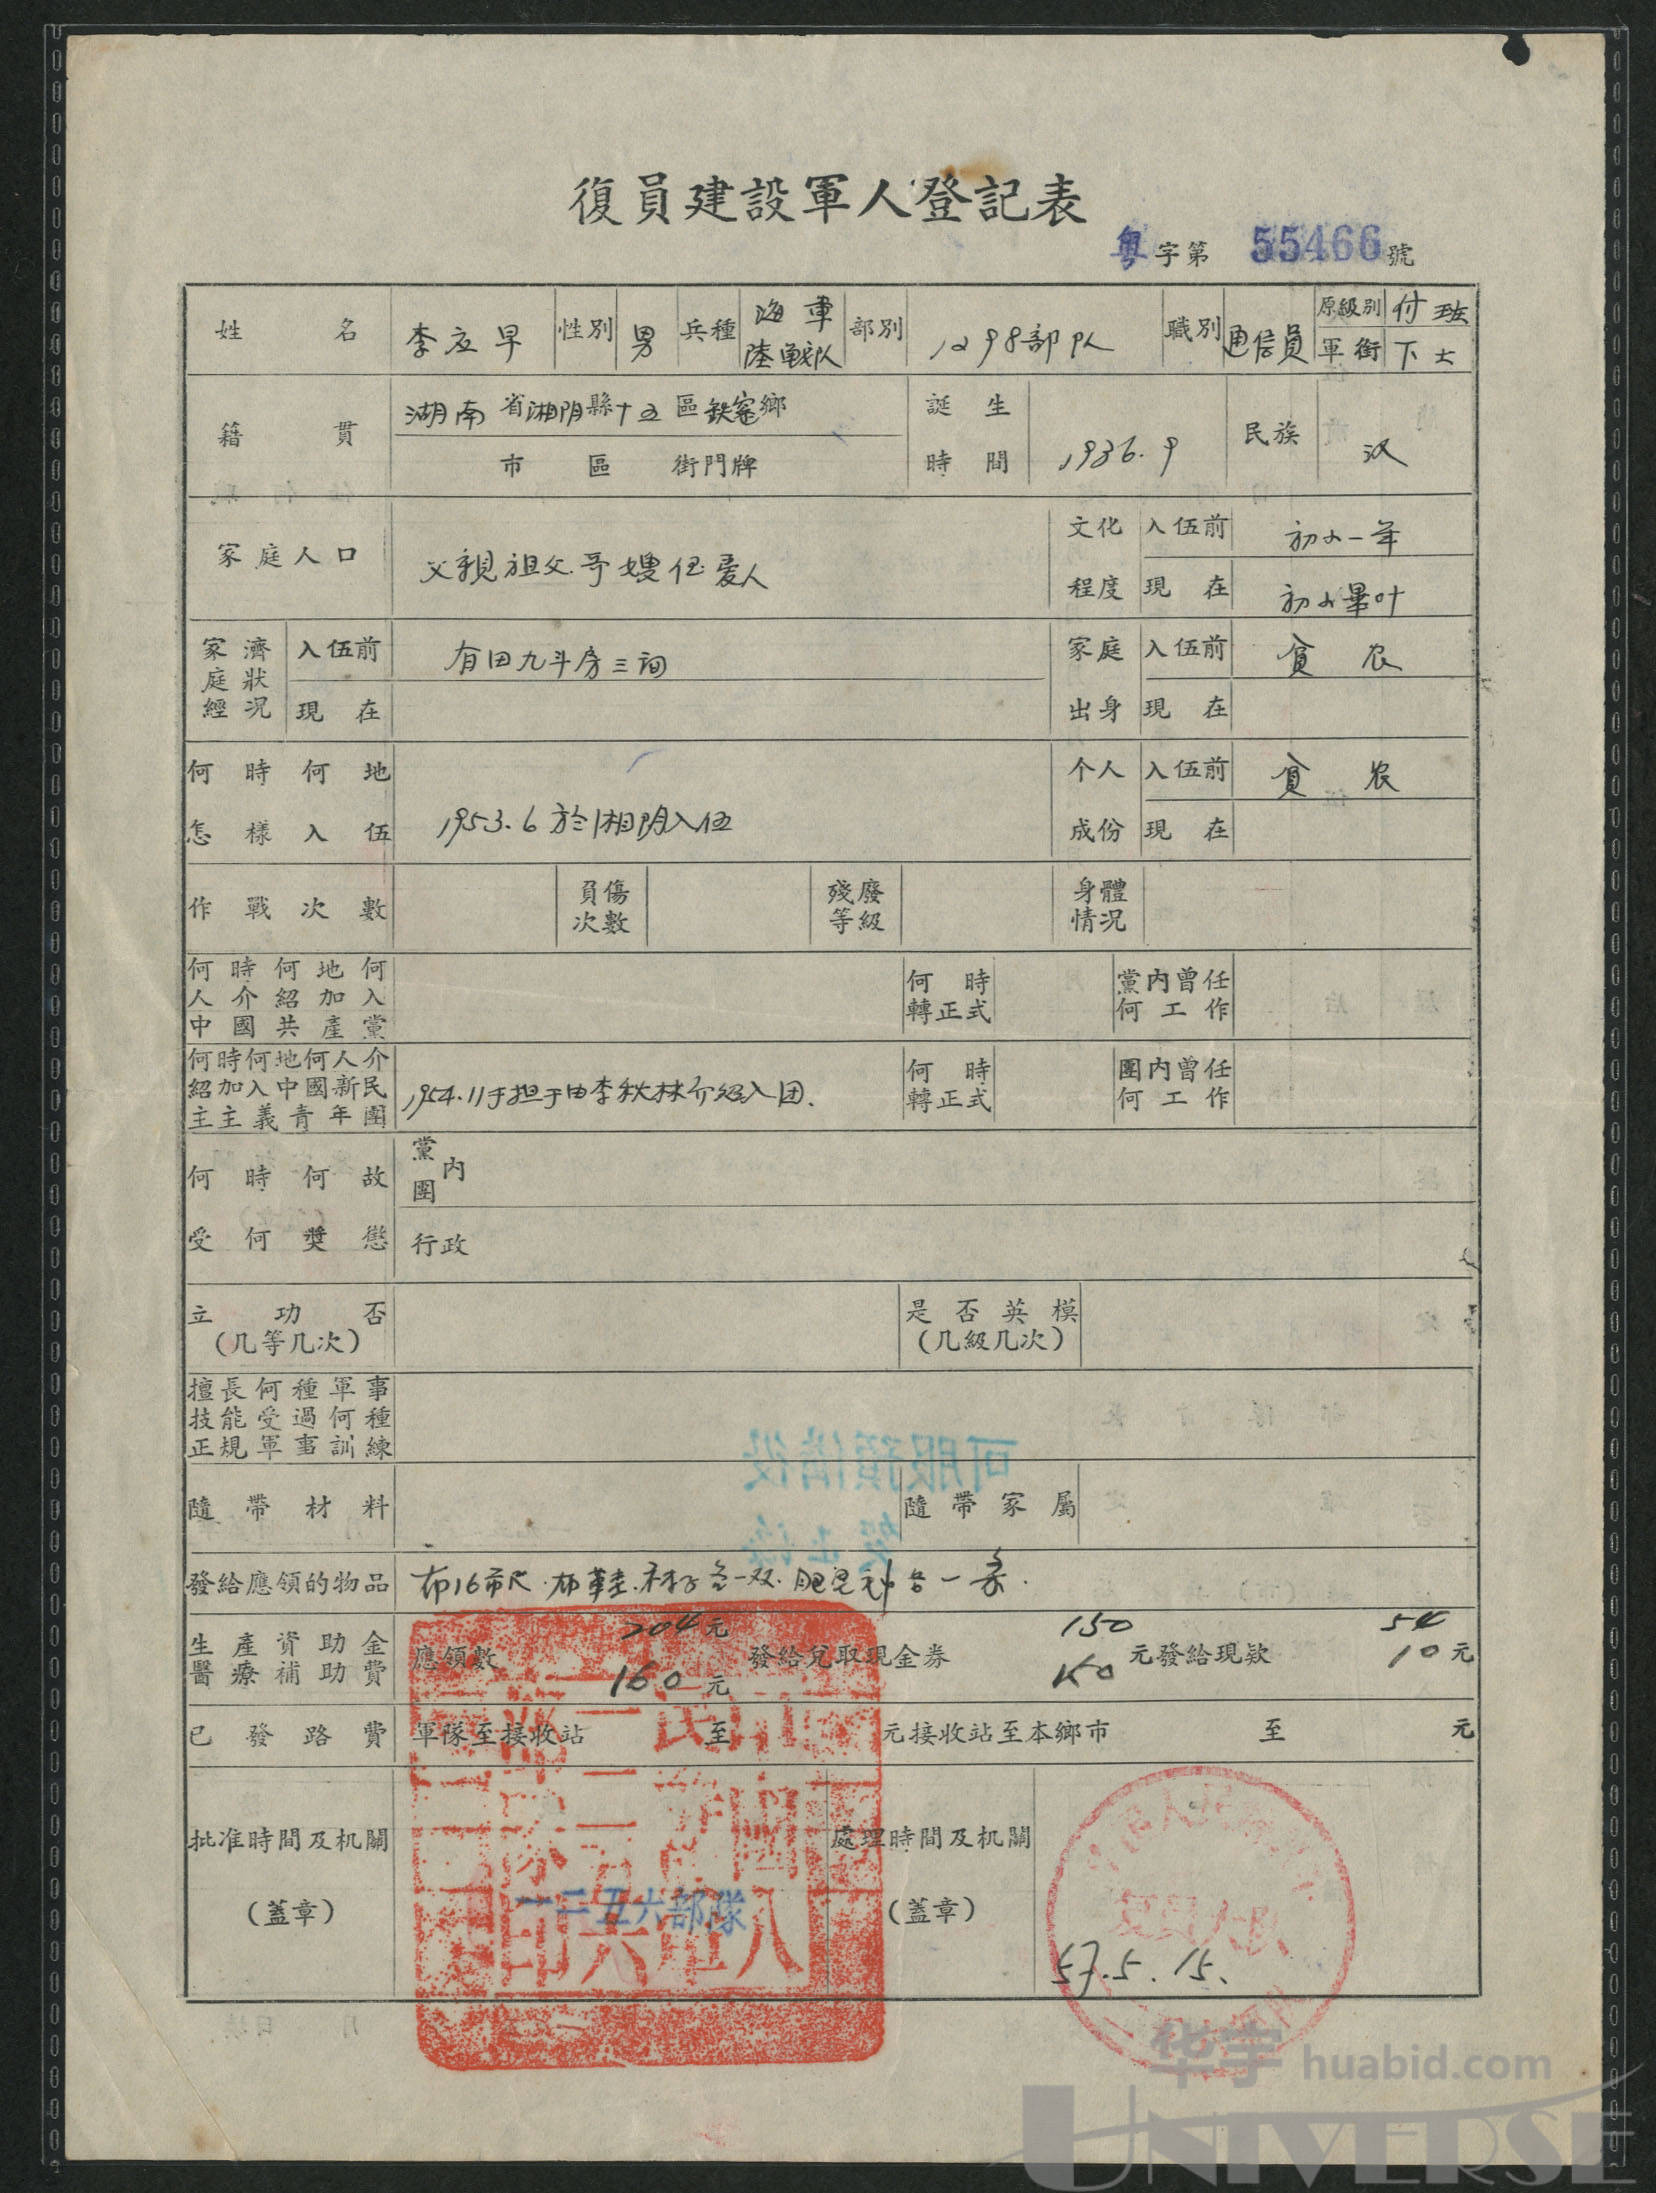 復員建設軍人登記表
粵字第 55466 號
姓名 李应早 性別 男 兵種 海軍陸戰队 部別 1298部队 職別 通信員 原級別 付班 軍銜 下士
籍貫 湖南省湘阴縣十五區鉄窰鄉
市 區 街門牌
誕生時間 1936.9 民族 汉
家庭人口 父親祖父.哥嫂侄爱人
文化程度 入伍前 初小一年
現在 初小畢叶
家庭經濟狀况 入伍前 有田九斗房三间
現在
家庭出身 入伍前 貧农
現在
何時何地怎樣入伍 1953.6於湘阴入伍
个人成份 入伍前 貧农
現在
作戰次數 負傷次數 殘廢等級 身體情况
何時何地何人介紹加入中國共產黨 何時轉正式 黨內曾任何工作
何時何地何人介紹加入中國新民主主義青年團 1954.11于担于由李秋林介绍入团. 何時轉正式 團內曾任何工作
何時何故受何獎懲 黨團內
行政
立功否(几等几次) 是否英模(几級几次)
擅長何種軍事技能受過何種正規軍事訓練
隨帶材料 隨帶家屬
發給應領的物品 布16市尺.布鞋.袜子各一双.
生產資助金醫療補助費 應領數 204元 160元 發給兌取現金券 150 150 元發給現欵 54 10元
已發路費 軍隊至接收站 至 元接收站至本鄉市 至 元
批准時間及机關(蓋章) 一二五六部隊
處理時間及机關(蓋章) 57.5.15.
华宇 huabid.com
UNIVERSE